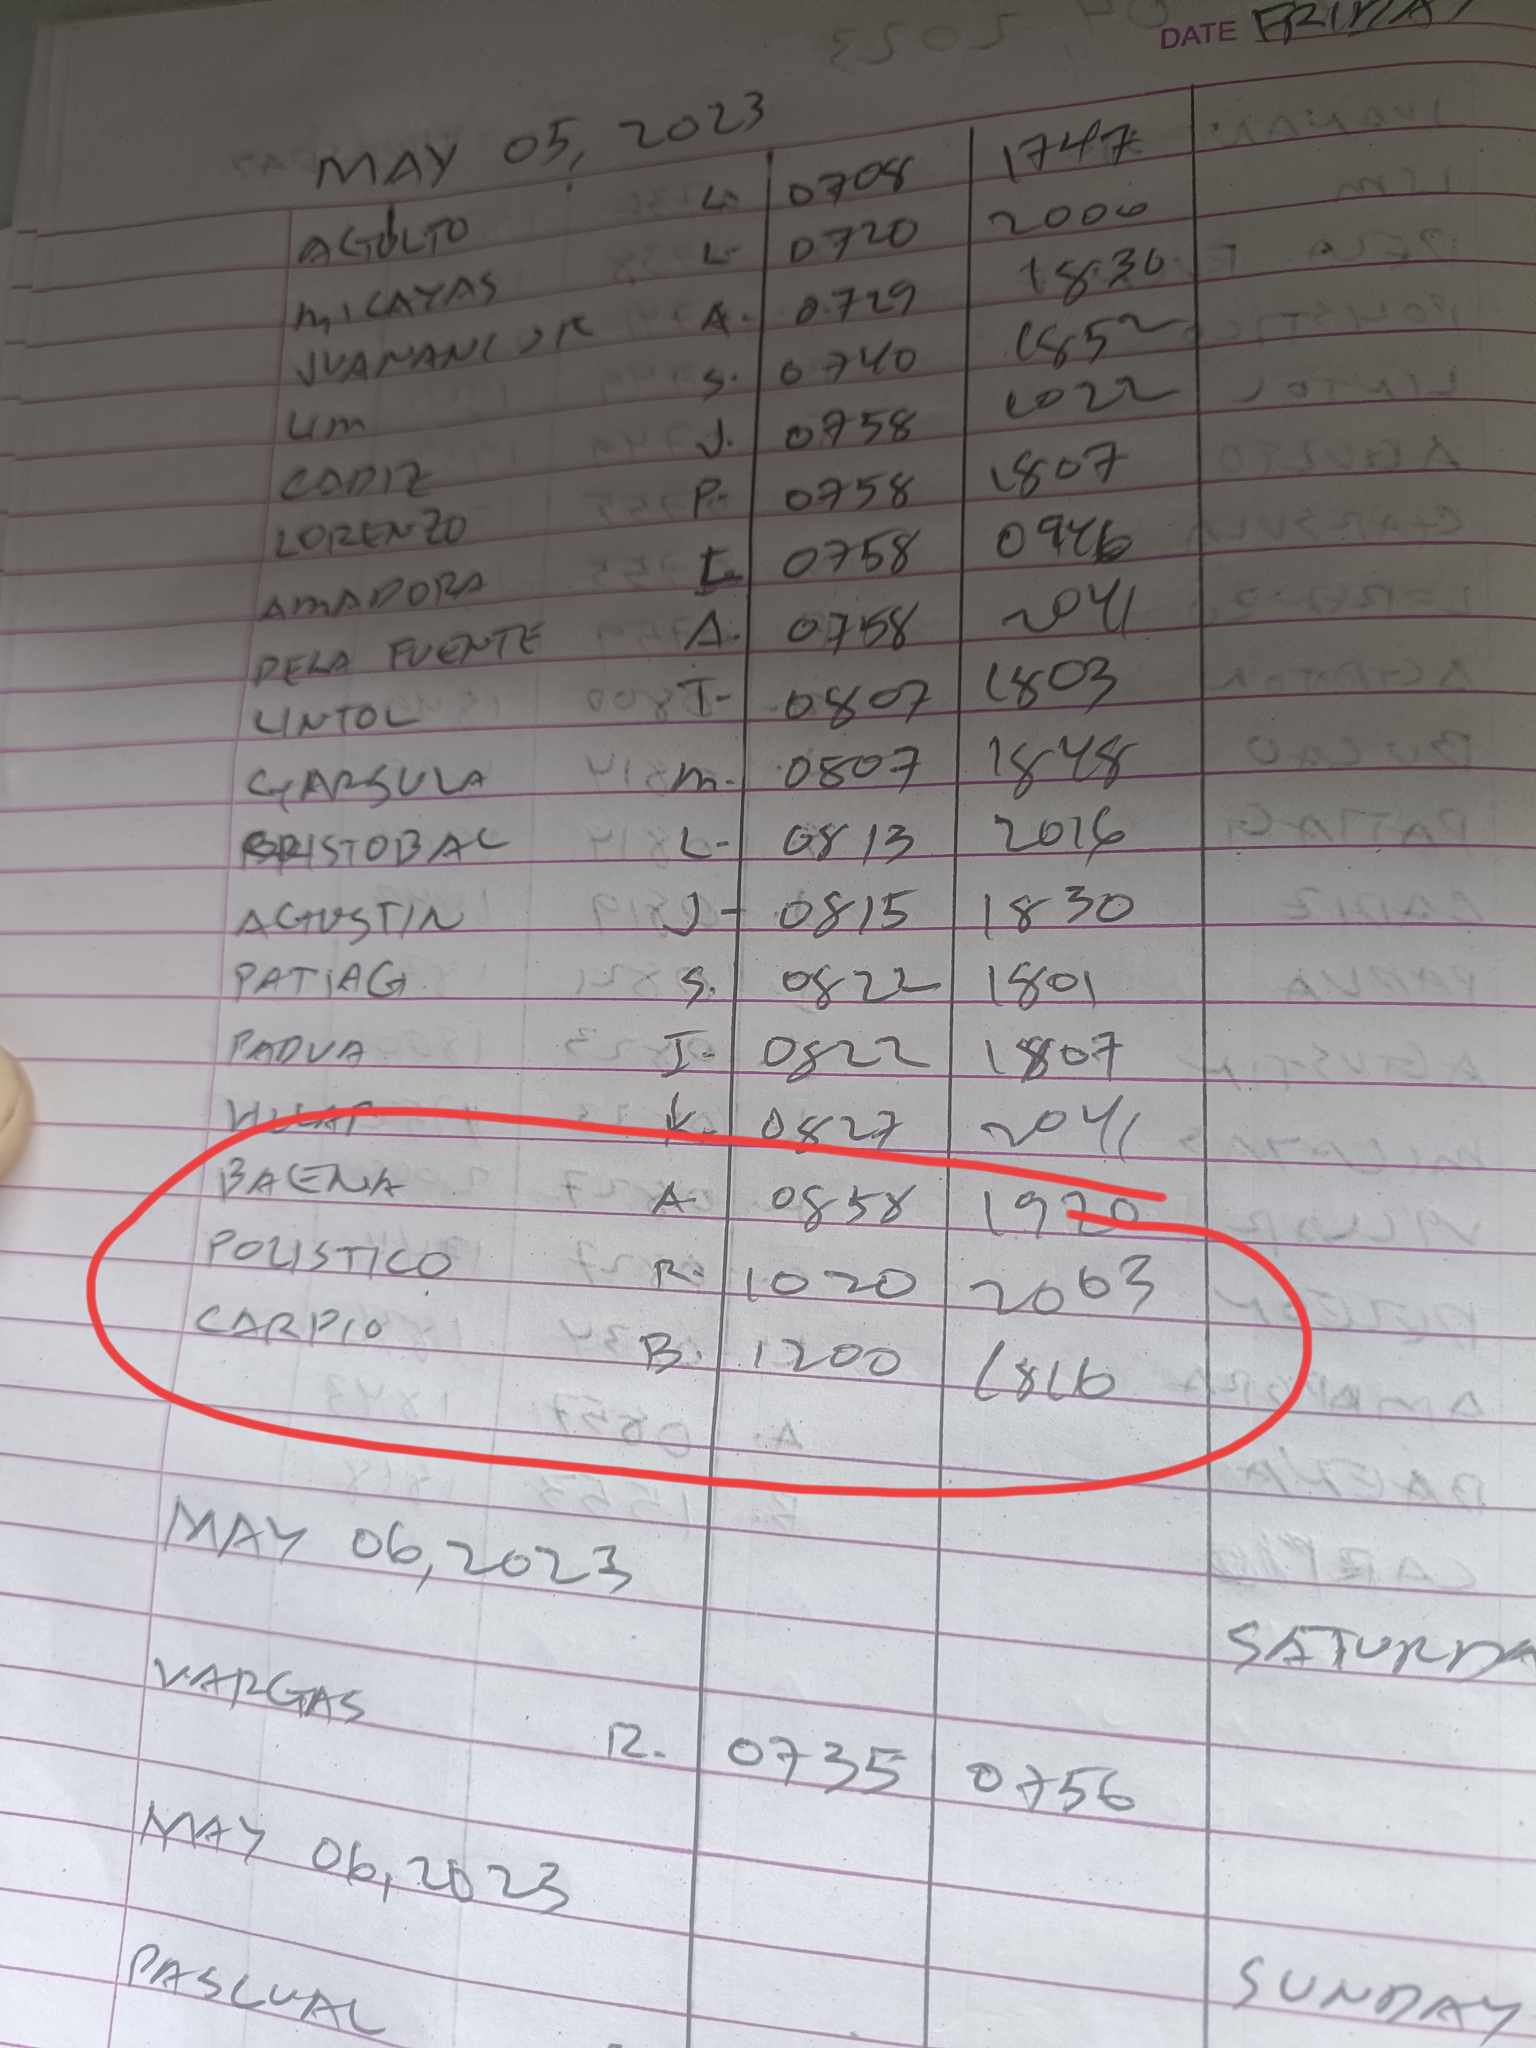 DATE FRIDAY
MAY 05, 2023
AGULTO L. 0708 1747
MICAYAS L. 0720 2000
JUANANCJR A. 0729 1830
LIM S. 0740 1852
CADIZ J. 0758 1022
LORENZO P. 0758 1807
AMADORA I. 0758 0946
DELA FUENTE A. 0758 2041
LINTOL I- 0807 1803
GARSULA M. 0807 1848
BRISTOBAL L- 0813 2016
AGUSTIN J- 0815 1830
PATIAG S. 0822 1801
PADUA I- 0822 1807
K. 0827 2041
BAENA A. 0858 1920
POLISTICO R. 1020 2003
CARPIO B. 1200 1816
MAY 06, 2023
SATURDA
VARGAS R. 0735 0756
MAY 06, 2023
SUNDAY
PASCUAL